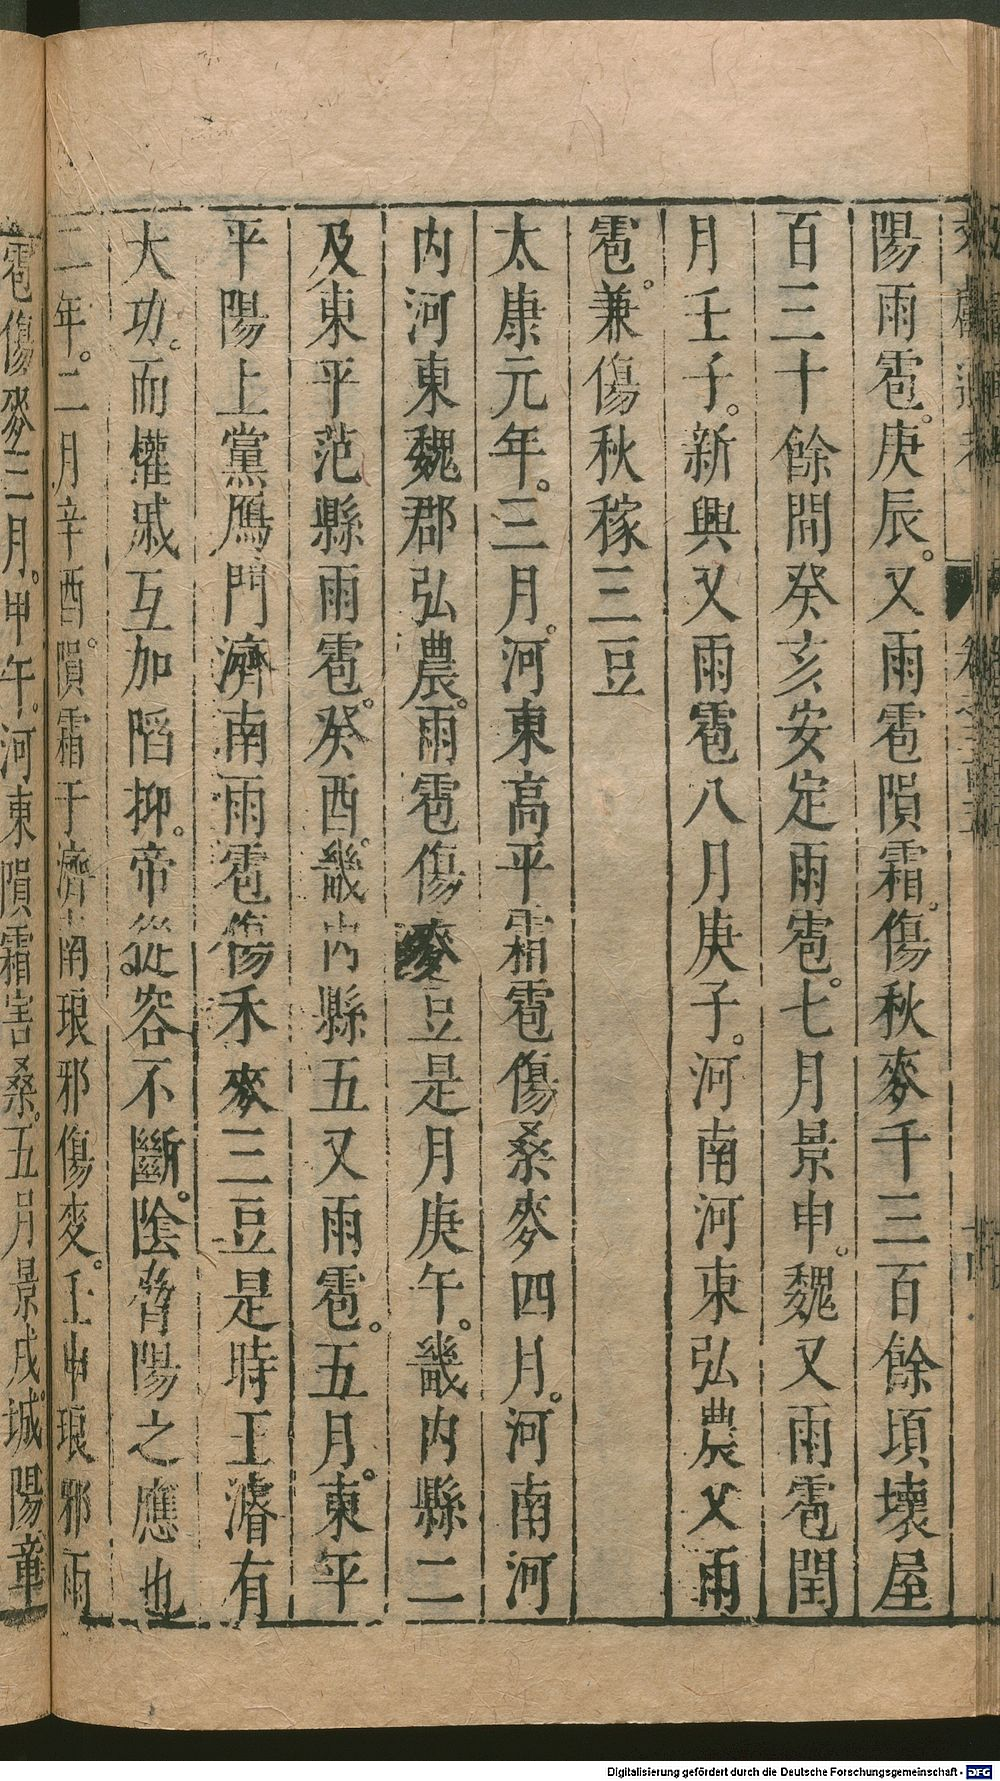 陽雨雹。庚辰。又雨雹隕霜。傷秋麥千三百餘頃壞屋
百三十餘間癸亥安定雨雹。七月景申。魏又雨雹閏
月壬子。新興又雨雹八月庚子。河南河東弘農又雨
雹。兼傷秋稼三豆
太康元年。三月。河東高平霜雹傷桑麥四月。河南河
內河東魏郡弘農。雨雹傷麥豆是月庚午。畿內縣二
及東平范縣雨雹。癸酉。畿內縣五又雨雹。五月。東平
平陽上黨鴈門濟南雨雹傷禾麥三豆是時王濬有
大功。而權戚互加陷抑。帝從容不斷。陰脅陽之應也
二年。二月辛酉。隕霜于濟南琅邪傷麥。壬申琅邪雨
雹傷麥三月。甲午。河東隕霜害桑。五月景戌。城陽章
Digitalisierung gefördert durch die Deutsche Forschungsgemeinschaft - DFG